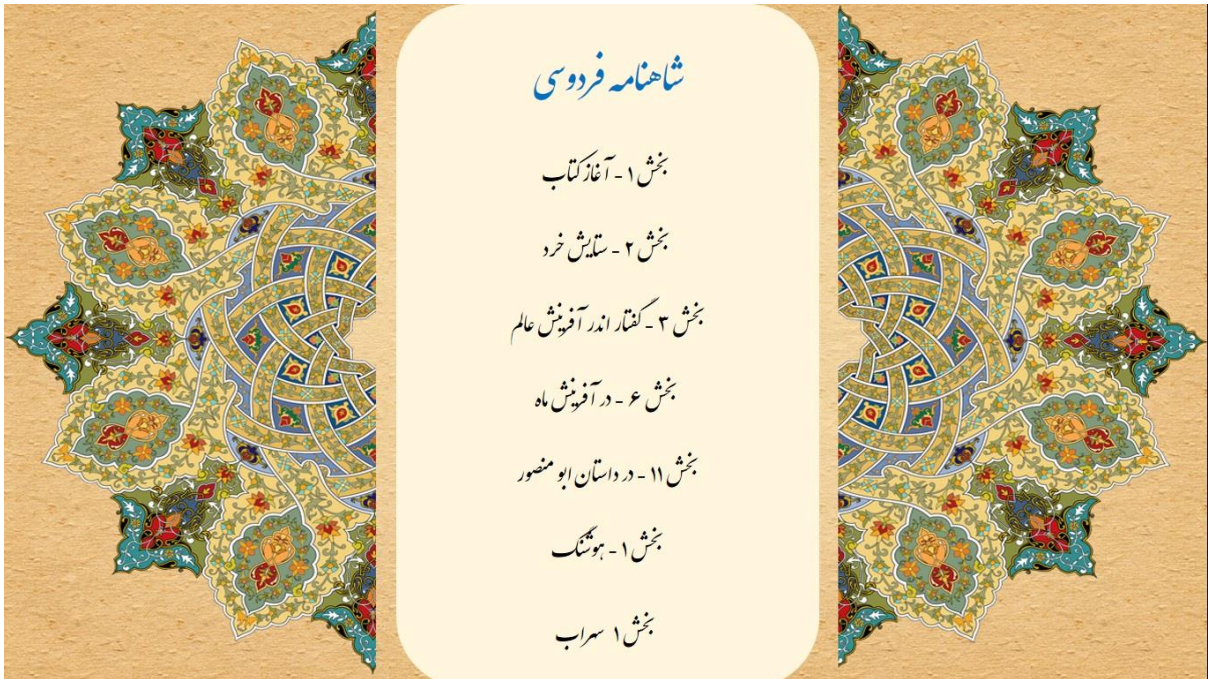 شاهنامه فردوسی
بخش ۱ - آغاز کتاب
بخش ۲ - ستایش خرد
بخش ۳ - گفتار اندر آفرینش عالم
بخش ۶ - در آفرینش ماه
بخش ۱۱ - در داستان ابو منصور
بخش ۱ - هوشنگ
بخش ۱ سهراب